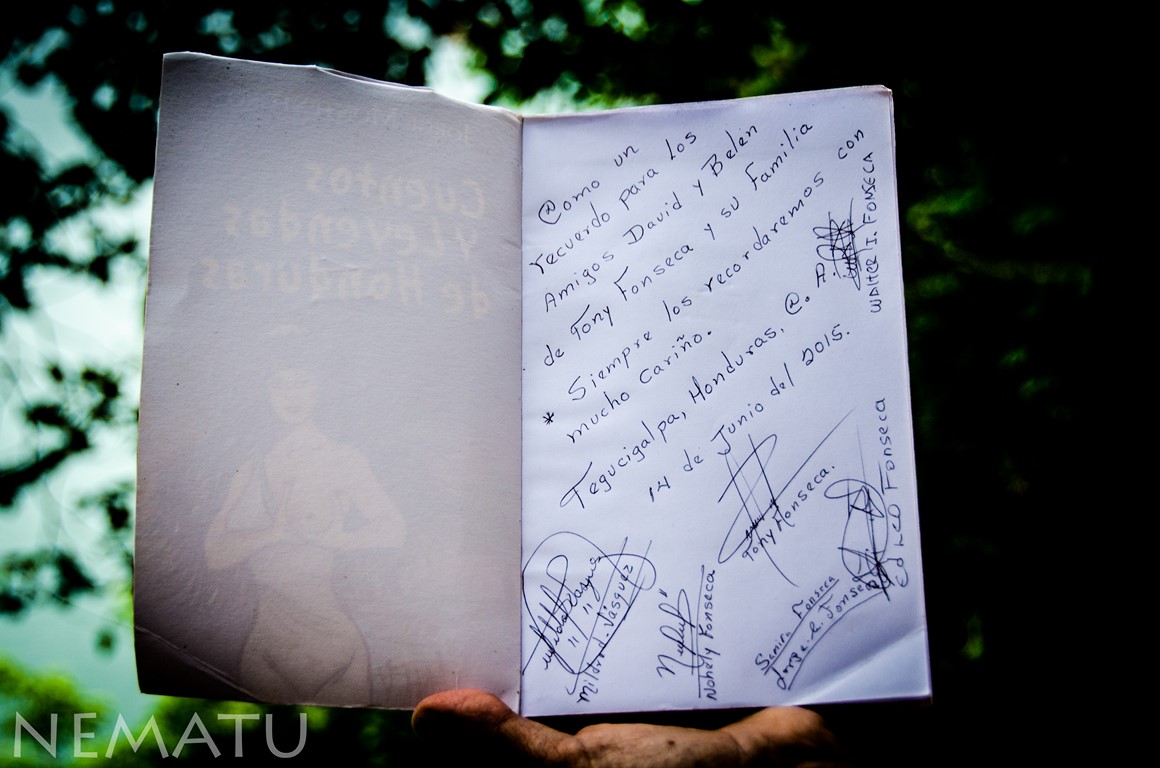 Cuentos
y Leyendas
de Honduras
Como un
recuerdo para los
Amigos David y Belén
de Tony Fonseca y su Familia
* Siempre los recordaremos con
mucho cariño.
Tegucigalpa, Honduras, C. A
14 de Junio del 2015.
WALTER I. FONSECA
Tony Fonseca.
Fonseca
Mildred Vásquez
Nohely Fonseca
Samira Fonseca
Jorge R. Fonseca
NEMATU